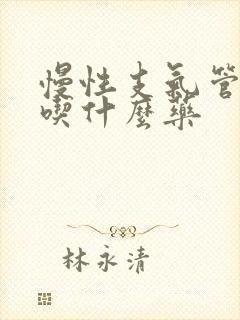 慢性支氣管
喫什麼藥
林永清